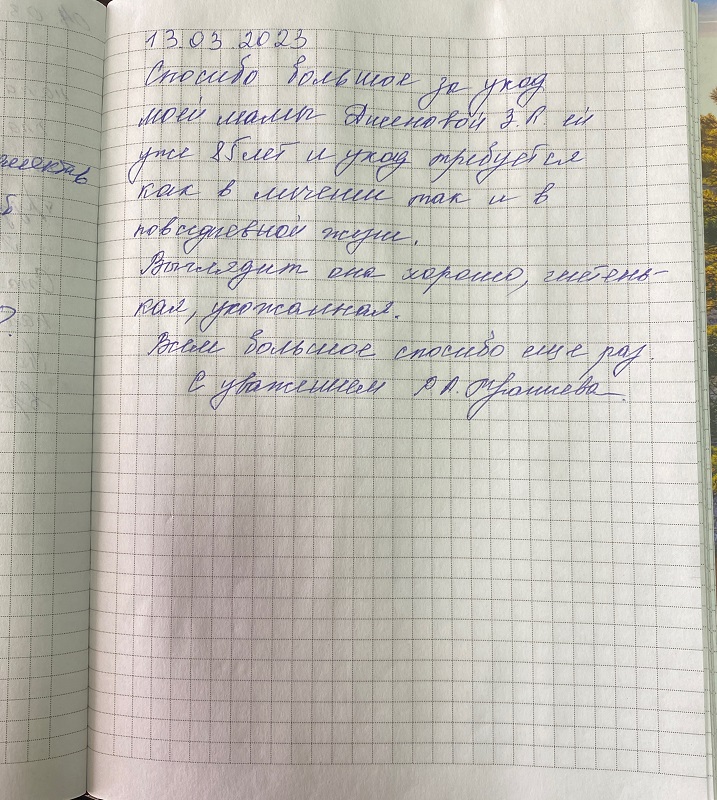 13.03.2023
Спосибо большое за уход
моей мамы З.Р. ей
уже 85 лет и уход требуется
как в личении так и в
повседневной жизни.
Выглядит она хорошо, чистень-
кая, ухоженная.
Всем большое спосибо еще раз.
С уважением